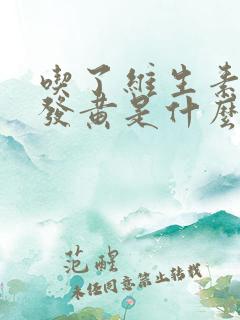 喫了維生素
發黃是什麼
范醒
未經同意禁止轉載